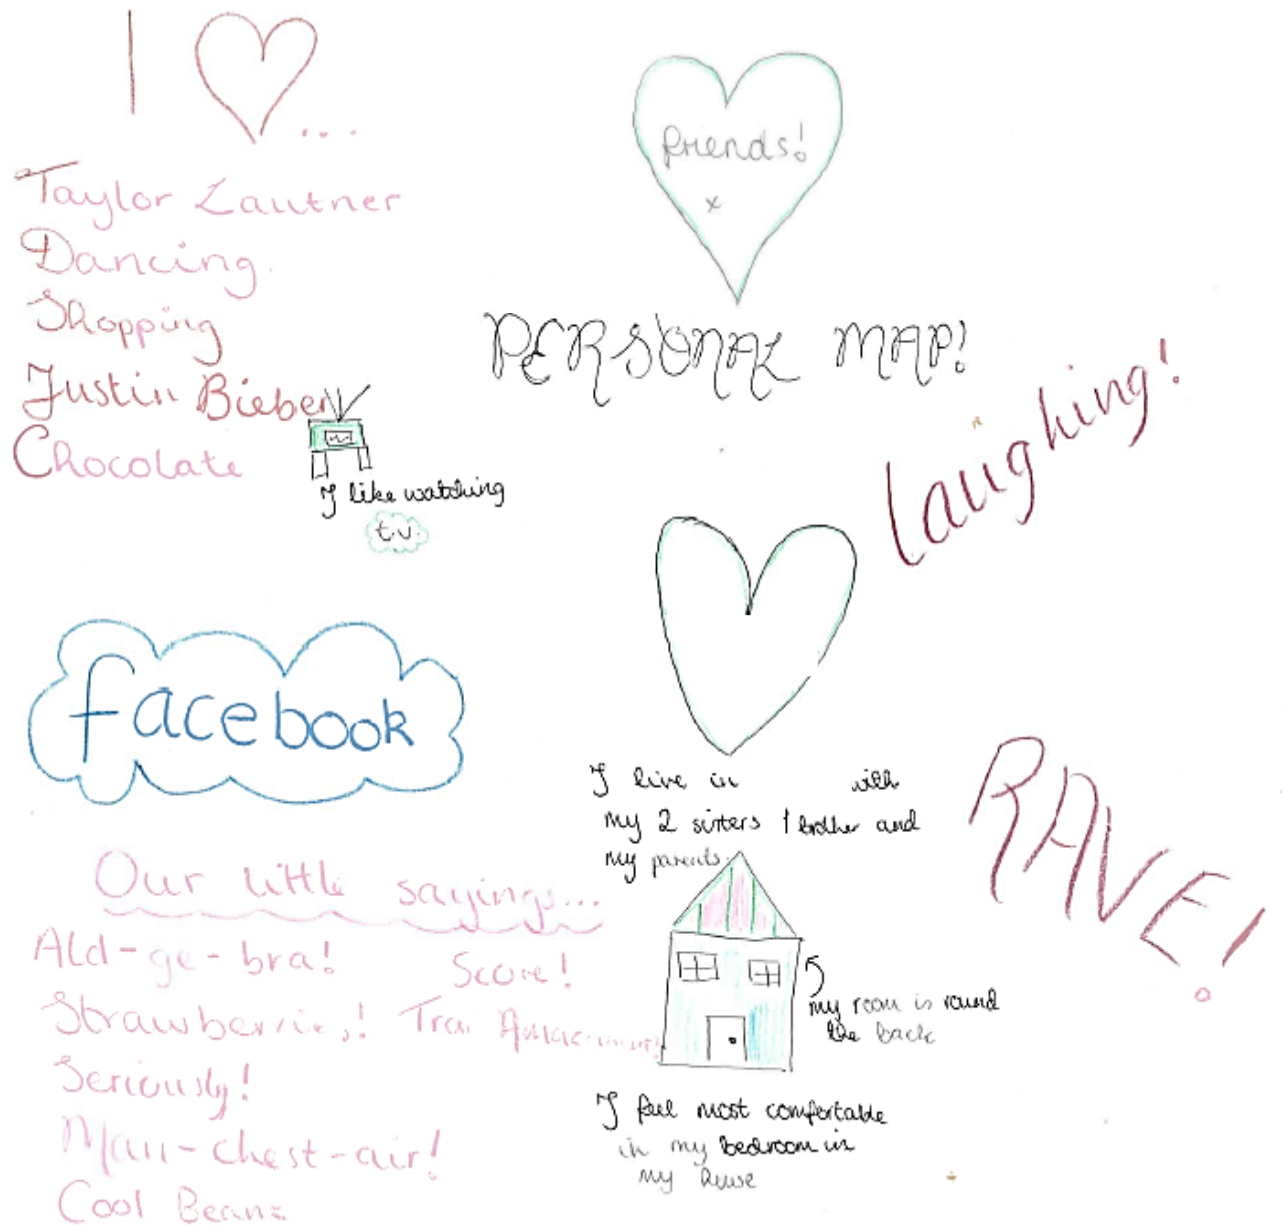 I ...
Taylor Lautner
Dancing.
Shopping
Justin Bieber
Chocolate
I like watching
t.v.
friends!
x
PERSONAL MAP!
Laughing!
facebook
I live in with
my 2 sisters 1 brother and
my parents.
RAVE!
my room is round
the back
I feel most comfortable
in my bedroom in
my house
Our little sayings...
Ald-ge-bra!
Score!
Strawberries!
Seriously!
Man-chest-air!
Cool Beans